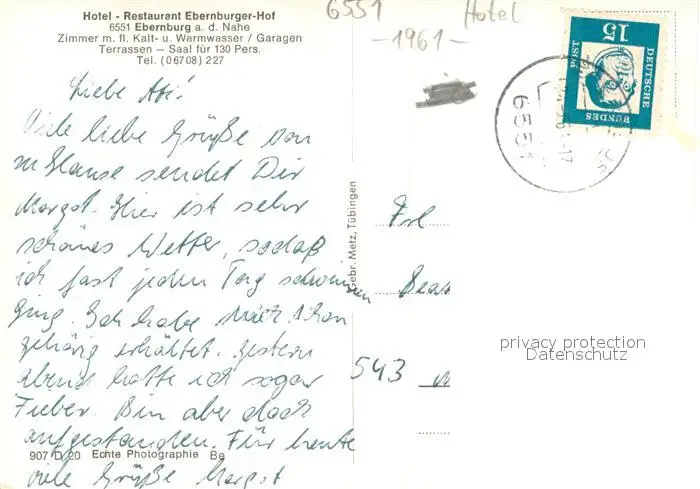 Hotel - Restaurant Ebernburger-Hof
6551 Ebernburg a. d. Nahe
Zimmer m. fl. Kalt- u. Warmwasser / Garagen
Terrassen — Saal für 130 Pers.
Tel. (06708) 227
6551 Hotel
-1961-
15
DEUTSCHE
BUNDES
POST
6551
Viele liebe Grüße von
zu Hause sendet Dir
Margot. Hier ist sehr
schönes Wetter, sodaß
ich fast jeden Tag schwimmen
ging. Ich habe mich schon
gehörig erkältet. Gestern
abend hatte ich sogar
Fieber. Bin aber doch
aufgestanden. Für heute
viele Grüße Margot
Gebr. Metz, Tübingen
Frl
543
907 D 20 Echte Photographie Be
privacy protection
Datenschutz